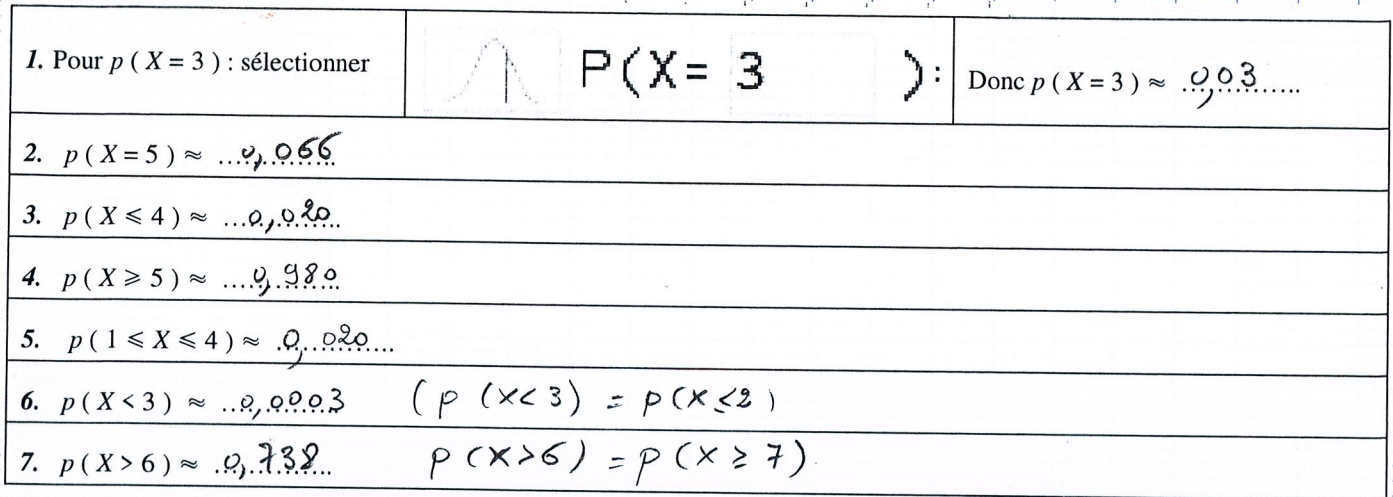 1. Pour p ( X = 3 ) : sélectionner
P(X= 3 ):
Donc p ( X = 3 ) ≈ 0,03
2. p ( X = 5 ) ≈ 0,066
3. p ( X ⩽ 4 ) ≈ 0,020
4. p ( X ⩾ 5 ) ≈ 0,980
5. p ( 1 ⩽ X ⩽ 4 ) ≈ 0,020
6. p ( X < 3 ) ≈ 0,0003 (p (X<3) = p(X≤2)
7. p ( X > 6 ) ≈ 0,738 p (X>6) = p (X ≥ 7)